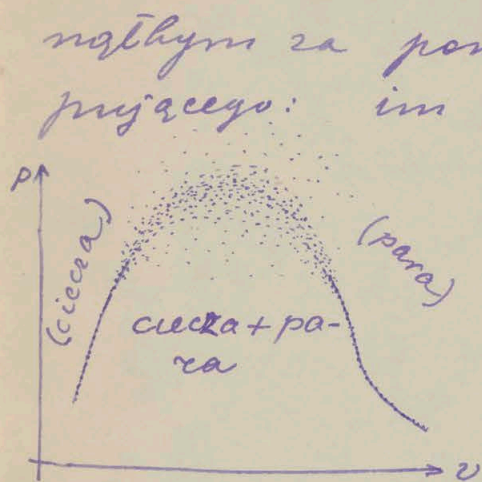 nętbym za
pującego: im
p
(ciecza)
(para)
ciecza + pa-
ra
v